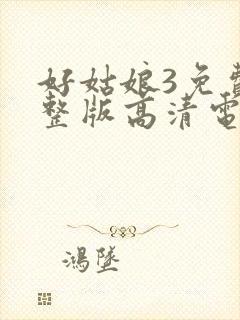 好姑娘3免費
整版高清電
鴻墜